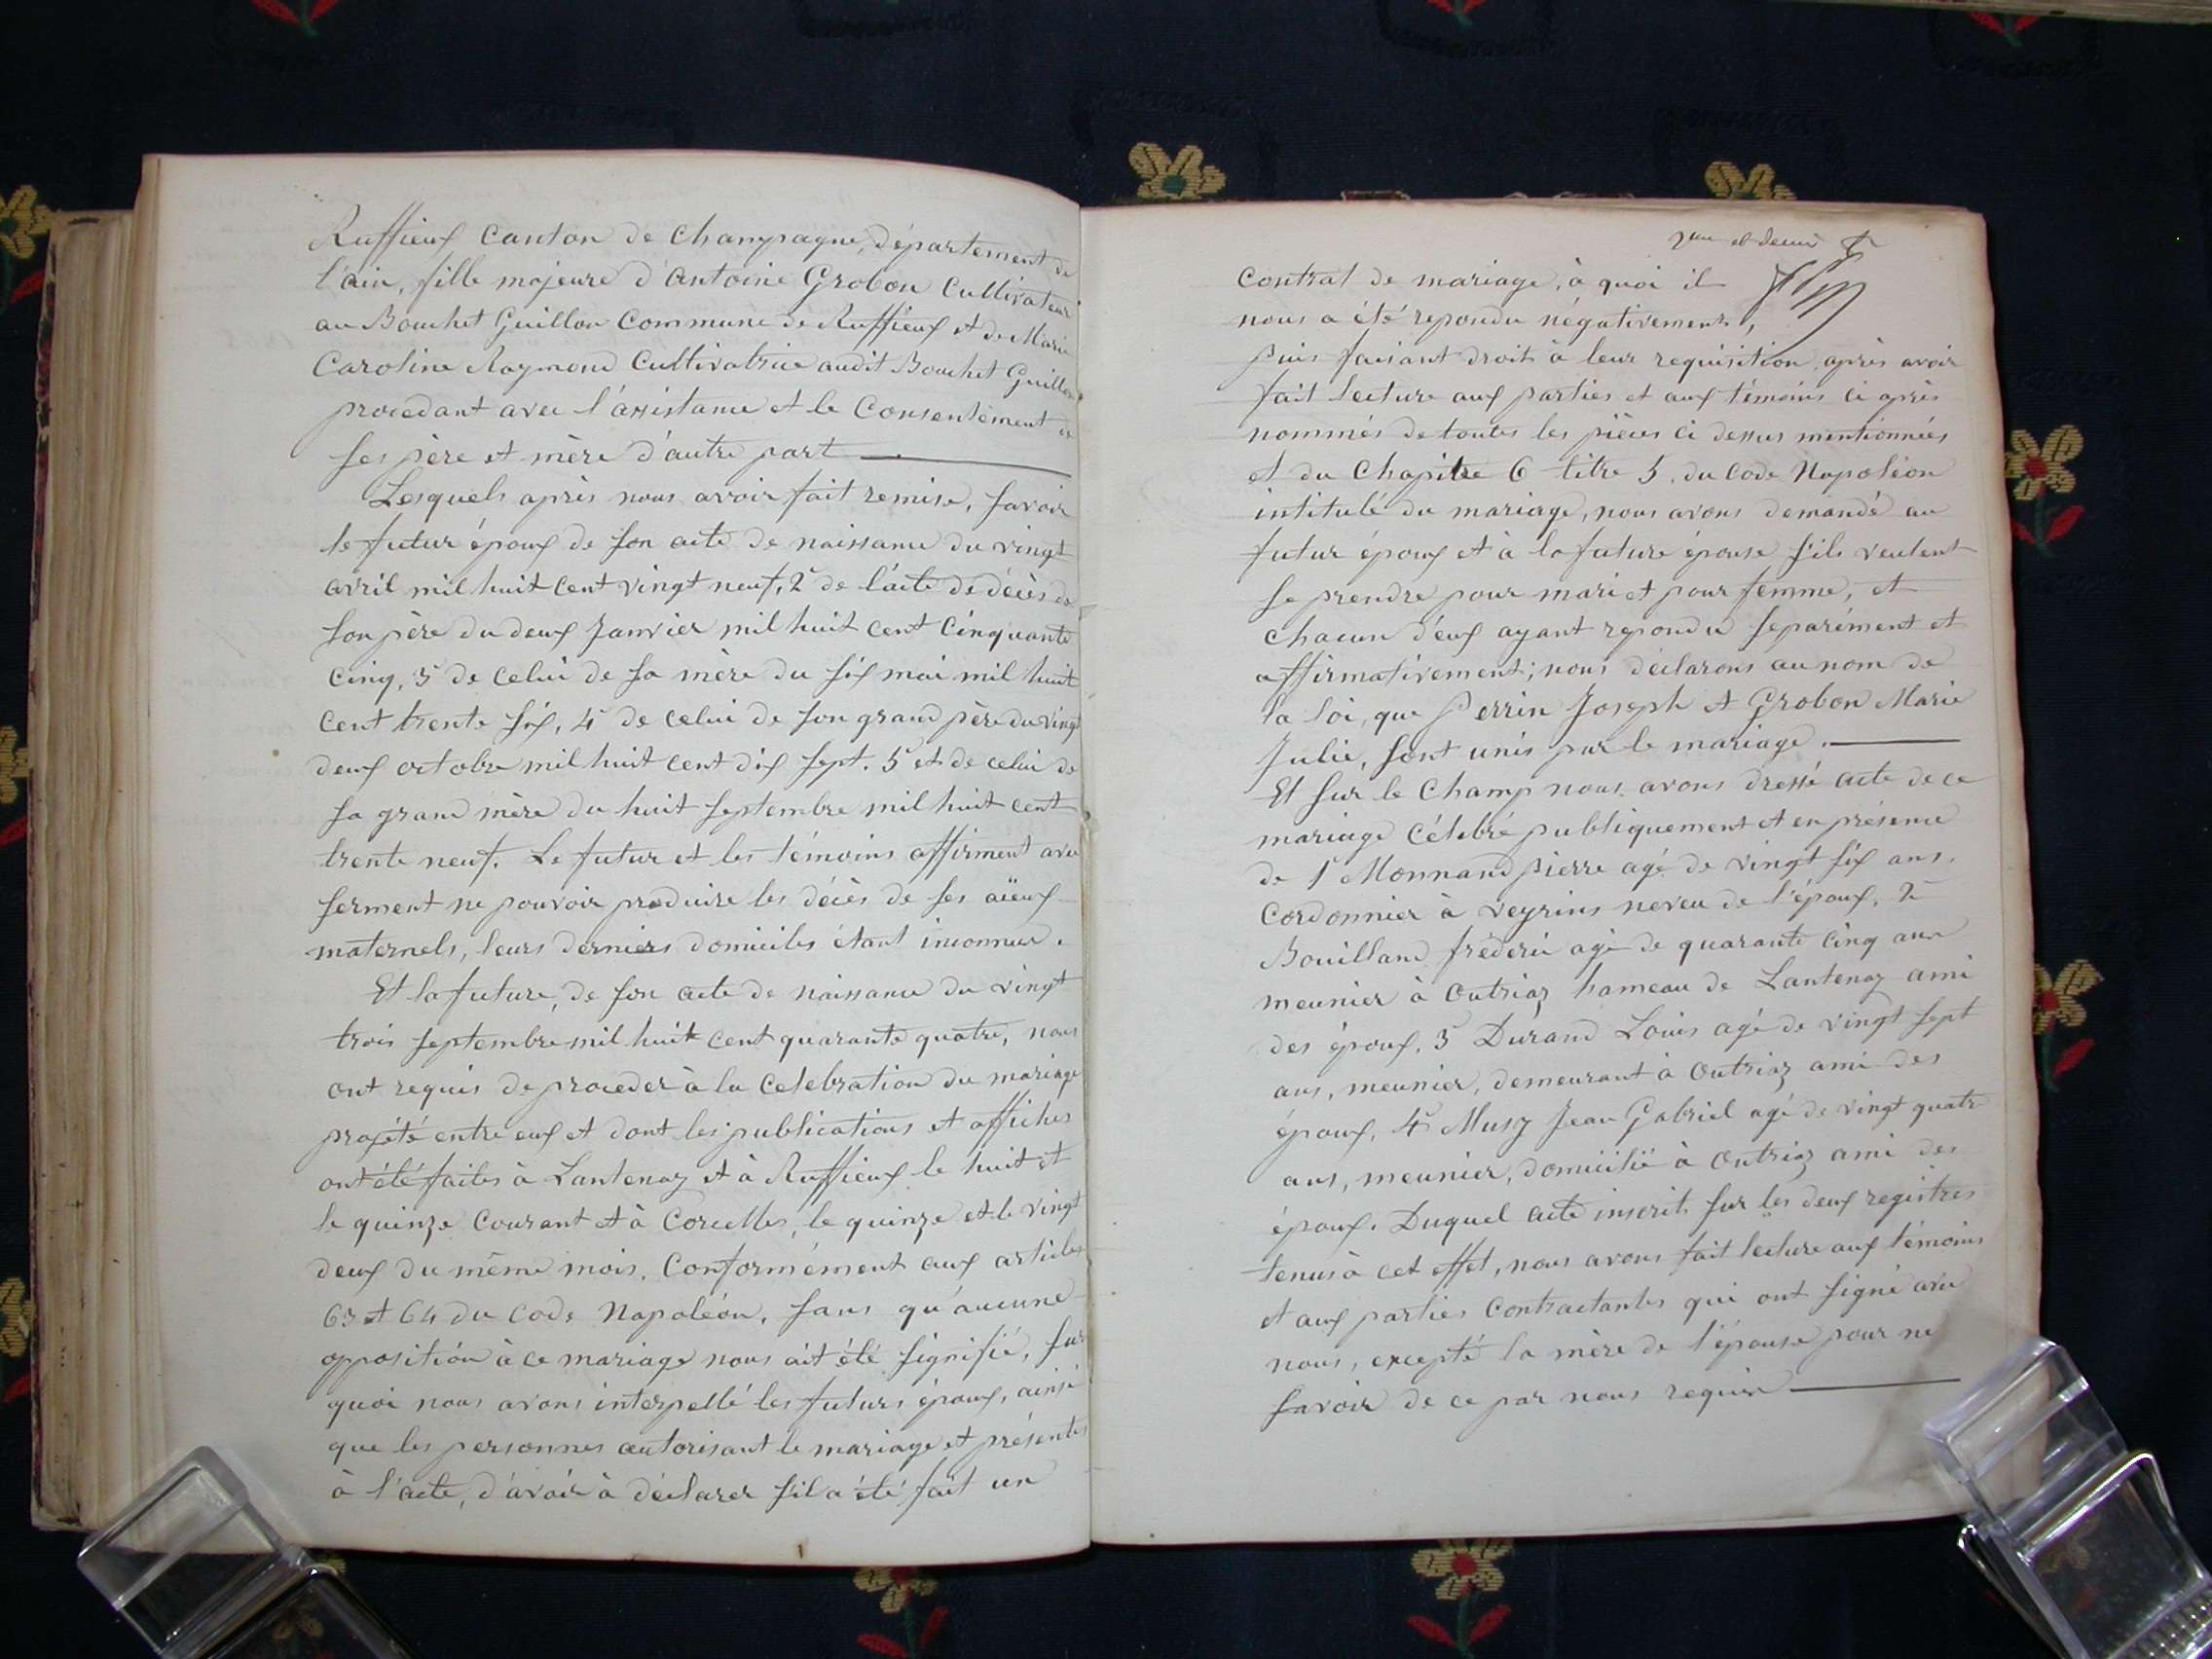 Ruffieux Canton de Champagne, département de
l'ain, fille majeure d'Antoine Grobon Cultivateur
au Bouchet Guillon Commune de Ruffieux et de Marie
Caroline Raymond Cultivatrice audit Bouchet Guillon
procedant avec l'assistance et le Consentement de
ses père et mère d'autre part
Lesquels après nous avoir fait remise, savoir
le futur époux de son acte de naissance du vingt
avril mil huit cent vingt neuf, 2° de l'acte de décès de
son père du deux Janvier mil huit cent Cinquante
Cinq, 3° de celui de sa mère du six mai mil huit
cent trente six, 4° de celui de son grand père du vingt
deux octobre mil huit cent dix sept. 5° et de celui de
sa grand mère du huit septembre mil huit cent
trente neuf. Le futur et les témoins affirment avec
serment ne pouvoir produire les décès de ses aïeux
maternels, leurs derniers domiciles étant inconnus.
Et la future, de son acte de naissance du vingt
trois septembre mil huit cent quarante quatre, nous
ont requis de proceder à la celebration du mariage
projété entre eux et dont les publications et affiches
ont été faites à Lantenay et à Ruffieux le huit et
le quinze Courant et à Corcelles, le quinze et le vingt
deux du même mois. Conformément aux articles
63 et 64 du Code Napoléon, sans qu'aucune
opposition à ce mariage nous ait été signifié, sur
quoi nous avons interpellé les futurs époux, ainsi
que les personnes autorisant le mariage et présentes
à l'acte, d'avoir à déclarer s'il a été fait un
contrat de mariage, à quoi il
nous a été repondu négativement,
Puis faisant droit à leur requisition, après avoir
fait lecture aux parties et aux témoins ci après
nommés de toutes les pièces ci dessus mentionnées
et du Chapitre 6 titre 5, du Code Napoléon
intitulé du mariage, nous avons demandé au
futur époux et à la future épouse s'ils veulent
se prendre pour mari et pour femme, et
chacun d'eux ayant repondu séparément et
affirmativement; nous déclarons au nom de
la loi, que Perrin Joseph et Grobon Marie
Julie, sont unis par le mariage.
Et sur le Champ nous avons dressé acte de ce
mariage Célébré publiquement et en présence
de 1° Monnand Pierre agé de vingt six ans,
Cordonnier à Veyrins neveu de l'époux, 2°
Bouilland fréderic agé de quarante Cinq ans
meunier à Outriaz hameau de Lantenay ami
des époux, 3° Durand Louis agé de vingt sept
ans, meunier, demeurant à Outriaz ami des
époux, 4° Musy Jean Gabriel agé de vingt quatre
ans, meunier, domicilié à Outriaz ami des
époux. Duquel acte inscrit sur les deux registres
tenus à cet effet, nous avons fait lecture aux témoins
et aux parties Contractantes qui ont signé avec
nous, excepté la mère de l'épouse pour ne
savoir de ce par nous requise